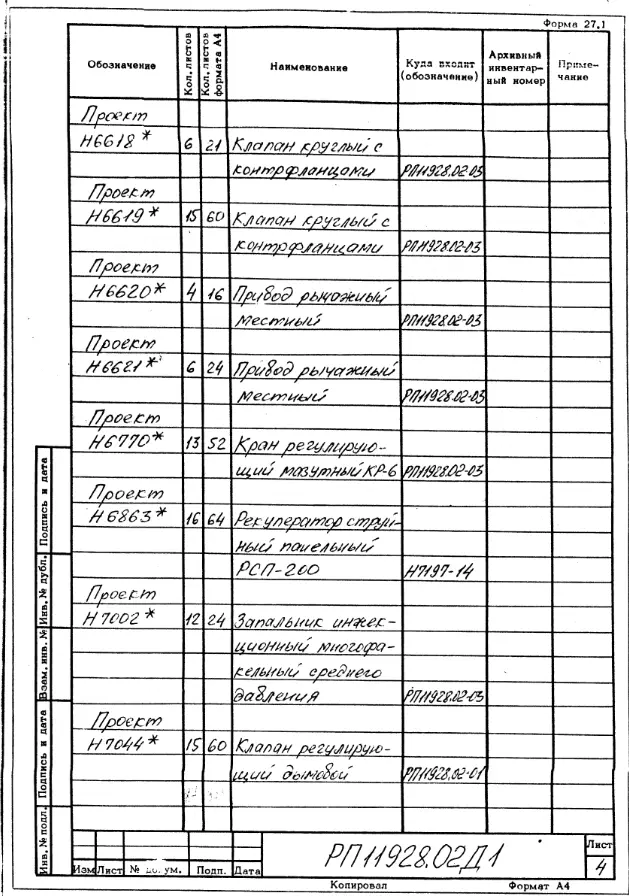 Форма 27.1
Обозначение Кол. листов Кол. листов формата А4 Наименование Куда входит (обозначение) Архивный инвентарный номер Примечание
Проект
Н6618* 6 21 Клапан круглый с
контрфланцами РП11928.02-03
Проект
Н6619* 15 60 Клапан круглый с
контрфланцами РП11928.02-03
Проект
Н6620* 4 16 Привод рычажный
местный РП11928.02-03
Проект
Н6621* 6 24 Привод рычажный
местный РП11928.02-03
Проект
Н6770* 13 52 Кран регулирую-
щий мазутный КР-6 РП11928.02-03
Проект
Н6863* 16 64 Рекуператор струй-
ный панельный
РСП-200 Н7197-14
Проект
Н7002* 12 24 Запальник инжек-
ционный многофа-
кельный среднего
давления РП11928.02-03
Проект
Н7044* 15 60 Клапан регулирую-
щий дымовой РП11928.02-01
Подпись и дата
Инв. № дубл.
Взам. инв. №
Подпись и дата
Инв. № подл.
РП11928.02Д1
Лист
4
Изм Лист № Подп. Дата
Копировал Формат А4